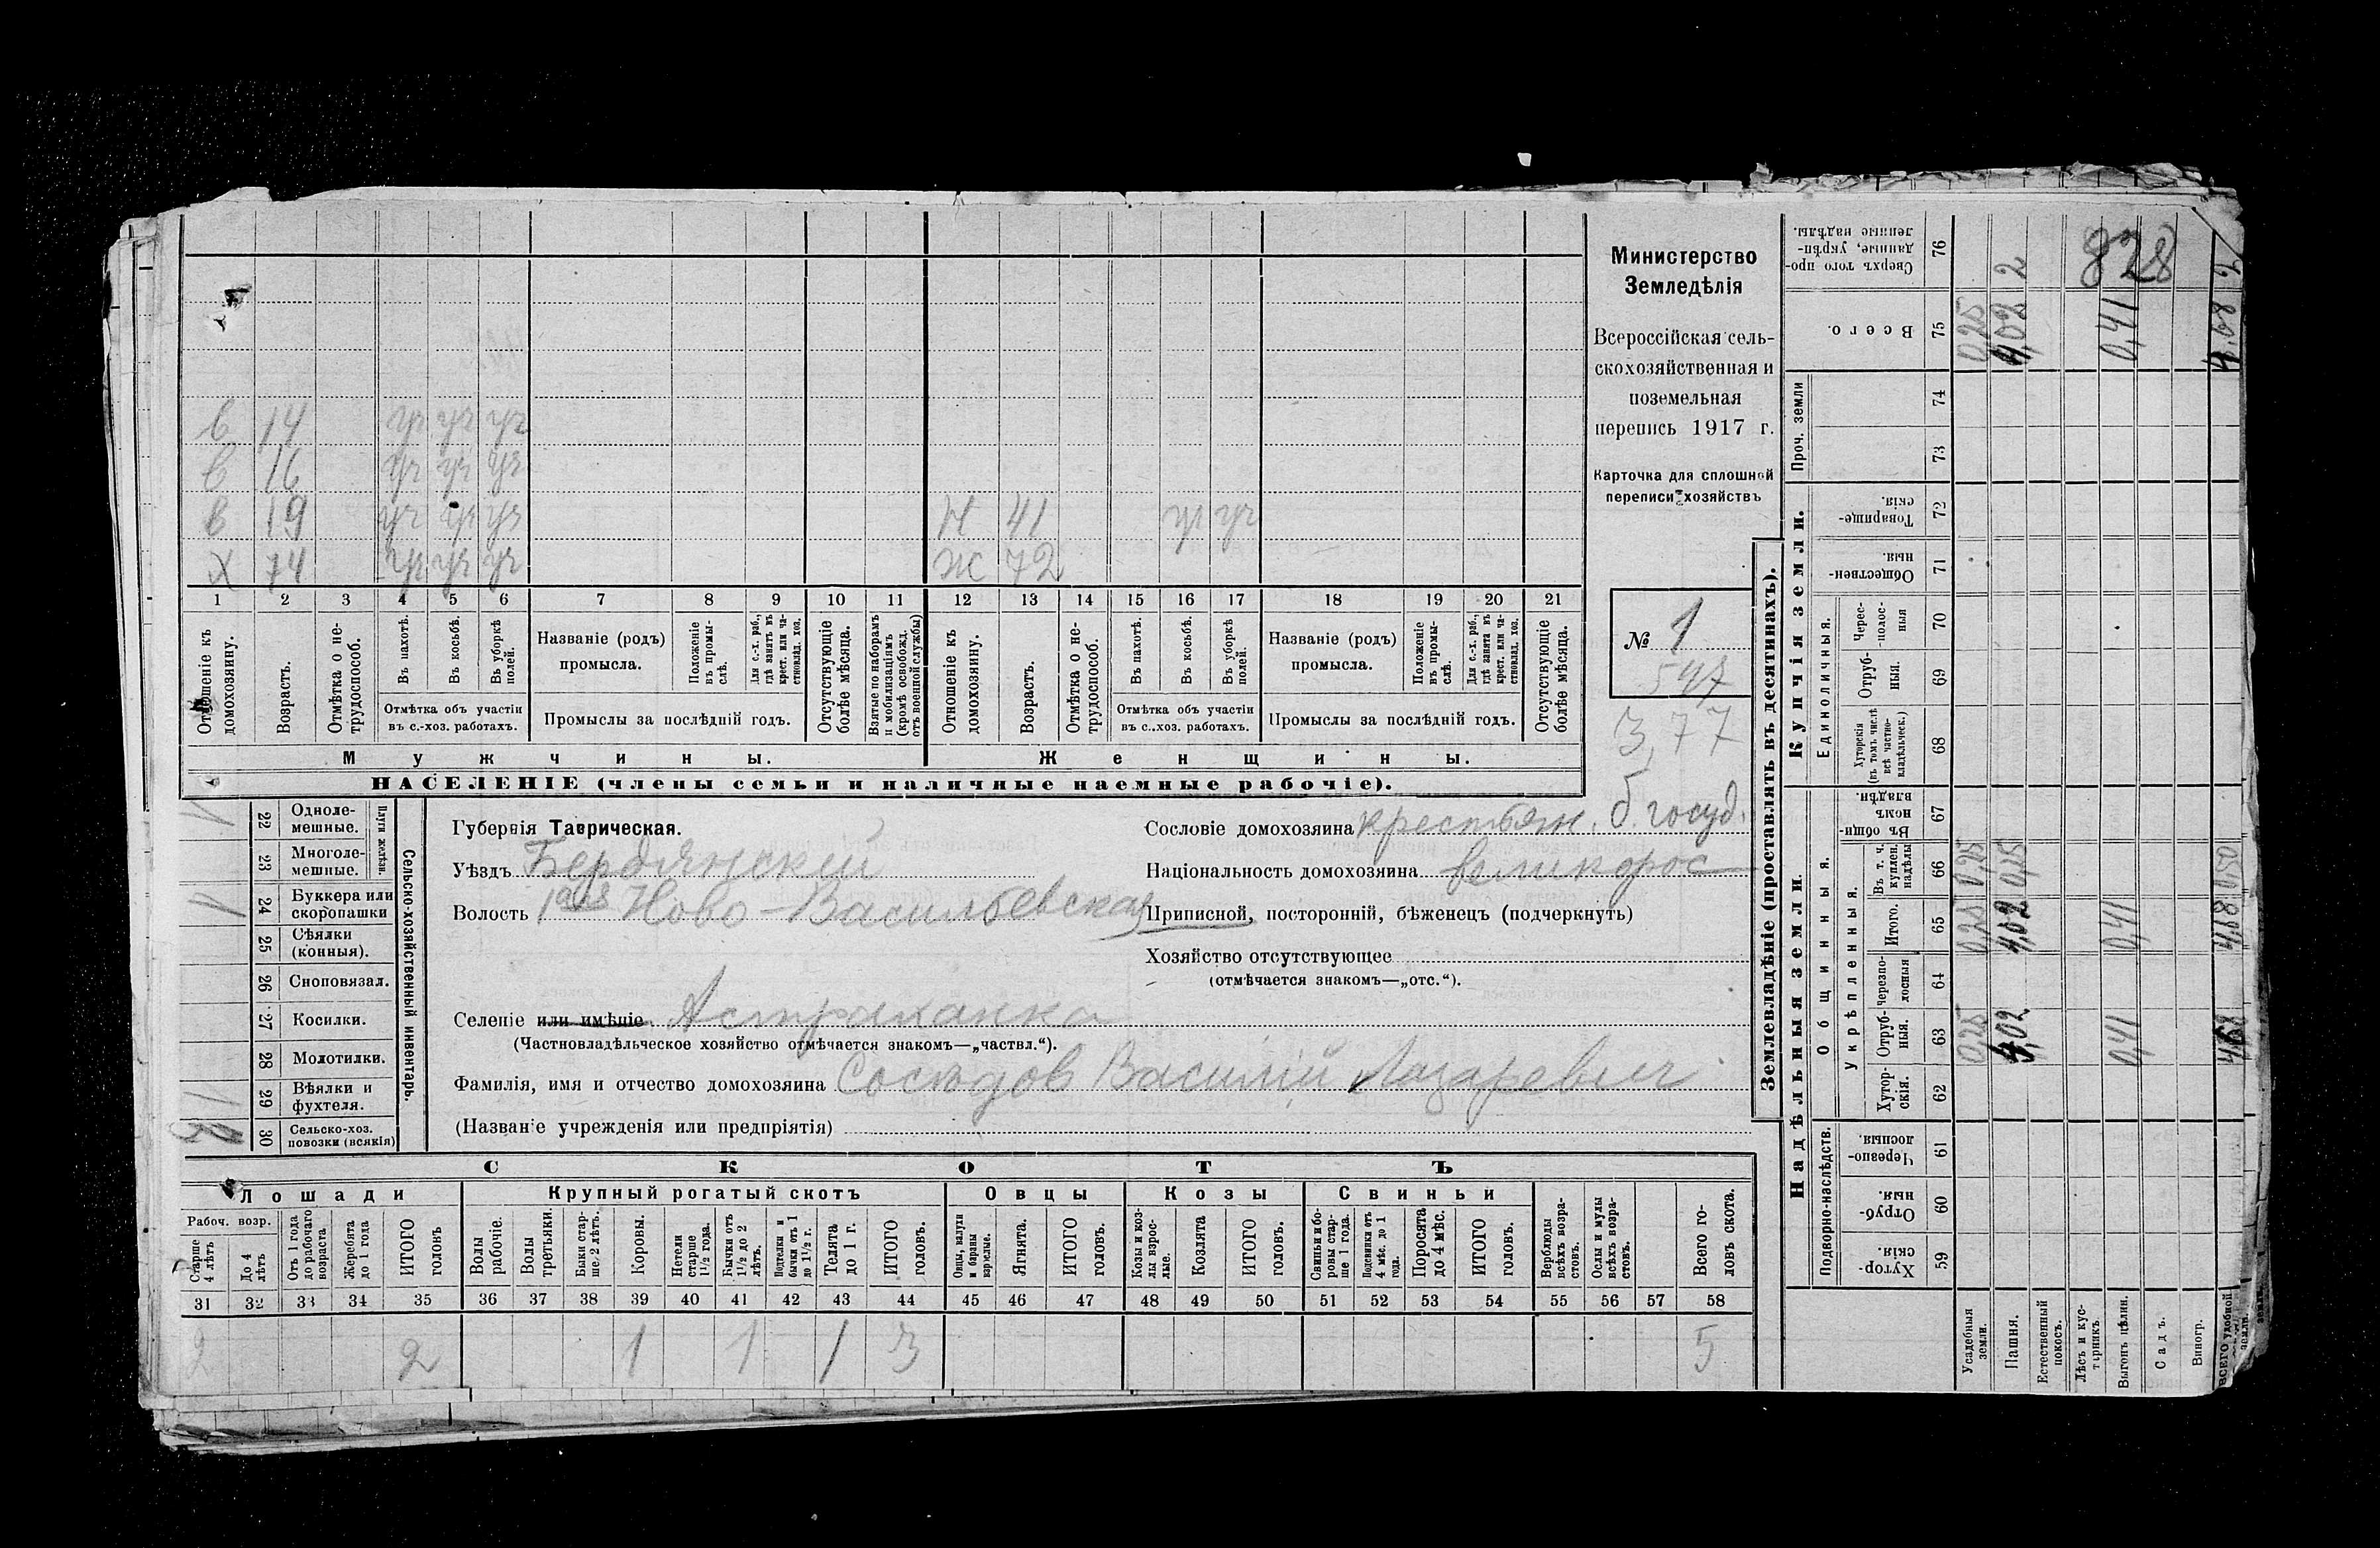 в 14 уч уч уч
в 16 уч уч уч
в 19 уч уч уч Н 41 уч уч
Х 74 уч уч уч Ж 72
1 2 3 4 5 6 7 8 9 10 11 12 13 14 15 16 17 18 19 20 21
Отношеніе къ домохозяину.
Возрастъ.
Отмѣтка о не-трудоспособ.
Въ пахотѣ.
Въ косьбѣ.
Въ уборкѣ полей.
Отмѣтка объ участіи
въ с.-хоз. работахъ.
Названіе (родъ)
промысла.
Положеніе въ промы-слѣ.
Для с.-х. раб., гдѣ занятъ въ крест. или ча-стновлад. хоз.
Промыслы за послѣдній годъ.
Отсутствующіе болѣе мѣсяца.
Взятые по наборамъ и мобилизаціямъ (кромѣ освобожд. отъ военной службы)
Отношеніе къ домохозяину.
Возрастъ.
Отмѣтка о не-трудоспособ.
Въ пахотѣ.
Въ косьбѣ.
Въ уборкѣ полей.
Отмѣтка объ участіи
въ с..хоз. работахъ.
Названіе (родъ)
промысла.
Положеніе въ промы-слѣ.
Для с.-х. раб., гдѣ занята въ крест. или ча-стновлад. хоз.
Промыслы за послѣдній годъ.
Отсутствующіе болѣе мѣсяца.
Мужчины. Женщины.
НАСЕЛЕНІЕ (члены семьи и наличные наемные рабочіе).
Министерство
Земледѣлія
Всероссійская сель-
скохозяйственная и
поземельная
перепись 1917 г.
Карточка для сплошной
переписи хозяйствъ
№ 1
547
3,77
22 Одноле-мешные.
23 Многоле-мешные.
Плуги желѣзн.
24 Буккера или скоропашки 1
25 Сѣялки (конныя).
26 Сноповязал.
27 Косилки.
28 Молотилки.
29 Вѣялки и фухтеля.
30 Сельско-хоз. повозки (всякія)
Сельско-хозяйственный инвентарь.
Губернія Таврическая.
Уѣздъ Бердянский
Волость 1ая Ново-Васильевская
Селеніе или имѣніе. Астраханка
(Частновладѣльческое хозяйство отмѣчается знакомъ—„частвл.“).
Фамилія, имя и отчество домохозяина Сосѣдов Василій Лазаревич
(Названіе учрежденія или предпріятія)
Сословіе домохозяина крестьян. б. госуд.
Національность домохозяина великорос
Приписной, посторонній, бѣженецъ (подчеркнуть)
Хозяйство отсутствующее
(отмѣчается знакомъ—„отс.“).
СКОТЪ
Лошади Крупный рогатый скотъ Овцы Козы Свиньи
Рабоч. возр.
Старше 4 лѣтъ
До 4 лѣтъ
Отъ 1 года до рабочаго возраста
Жеребята до 1 года
ИТОГО головъ
Волы рабочіе.
Волы третьяки.
Быки стар-ше 2 лѣтъ.
Коровы.
Нетели старше 1½ года.
Бычки отъ 1½ до 2 лѣтъ.
Подтелки и бычки отъ 1 до 1½ г.
Телята до 1 г.
ИТОГО головъ.
Овцы, валухи и бараны взрослые.
Ягнята.
ИТОГО головъ.
Козы и коз-лы взрос-лые.
Козлята
ИТОГО головъ.
Свиньи и бо-ровы стар-ше 1 года.
Подсвинки отъ 4 мѣс. до 1 года.
Поросята до 4 мѣс.
ИТОГО головъ.
Верблюды всѣхъ возра-стовъ.
Ослы и мулы всѣхъ возра-стовъ.
Всего го-ловъ скота.
31 32 33 34 35 36 37 38 39 40 41 42 43 44 45 46 47 48 49 50 51 52 53 54 55 56 57 58
2 2 1 1 1 3 5
Землевладѣніе (проставлять въ десятинахъ).
Надѣльныя земли. Купчія земли. Проч. земли
Подворно-наслѣдств.
Общинныя.
Укрѣпленныя.
Единоличныя.
59 Хутор-скія.
60 Отруб-ныя.
61 Черезпо-лосныя
62 Хутор-скія.
63 Отруб-ныя. 0,25 4,02 0,41 4,68
64 Черезпо-лосныя
65 Итого. 0,25 4,02 0,41
66 Въ т. ч. куплен. надѣлы 0,25 0,25 0,50
67 Въ общи-номъ владѣн.
68 Хуторскія (въ томъ числѣ всѣ частно-владѣльческ.)
69 Отруб-ныя.
70 Черес-полос-ныя
71 Обществен-ныя.
72 Товарище-скія.
73
74
75 Всего. 0,25 4,02 0,41 4,68
76 Сверхъ того про-данные, укрѣп-ленные надѣлы. 2 2
828
Усадебныя земли.
Пашня.
Естественный покосъ.
Лѣсъ и кус-тарникъ.
Выгонъ цѣлин.
Садъ.
Виногр.
ВСЕГО удобной земли.